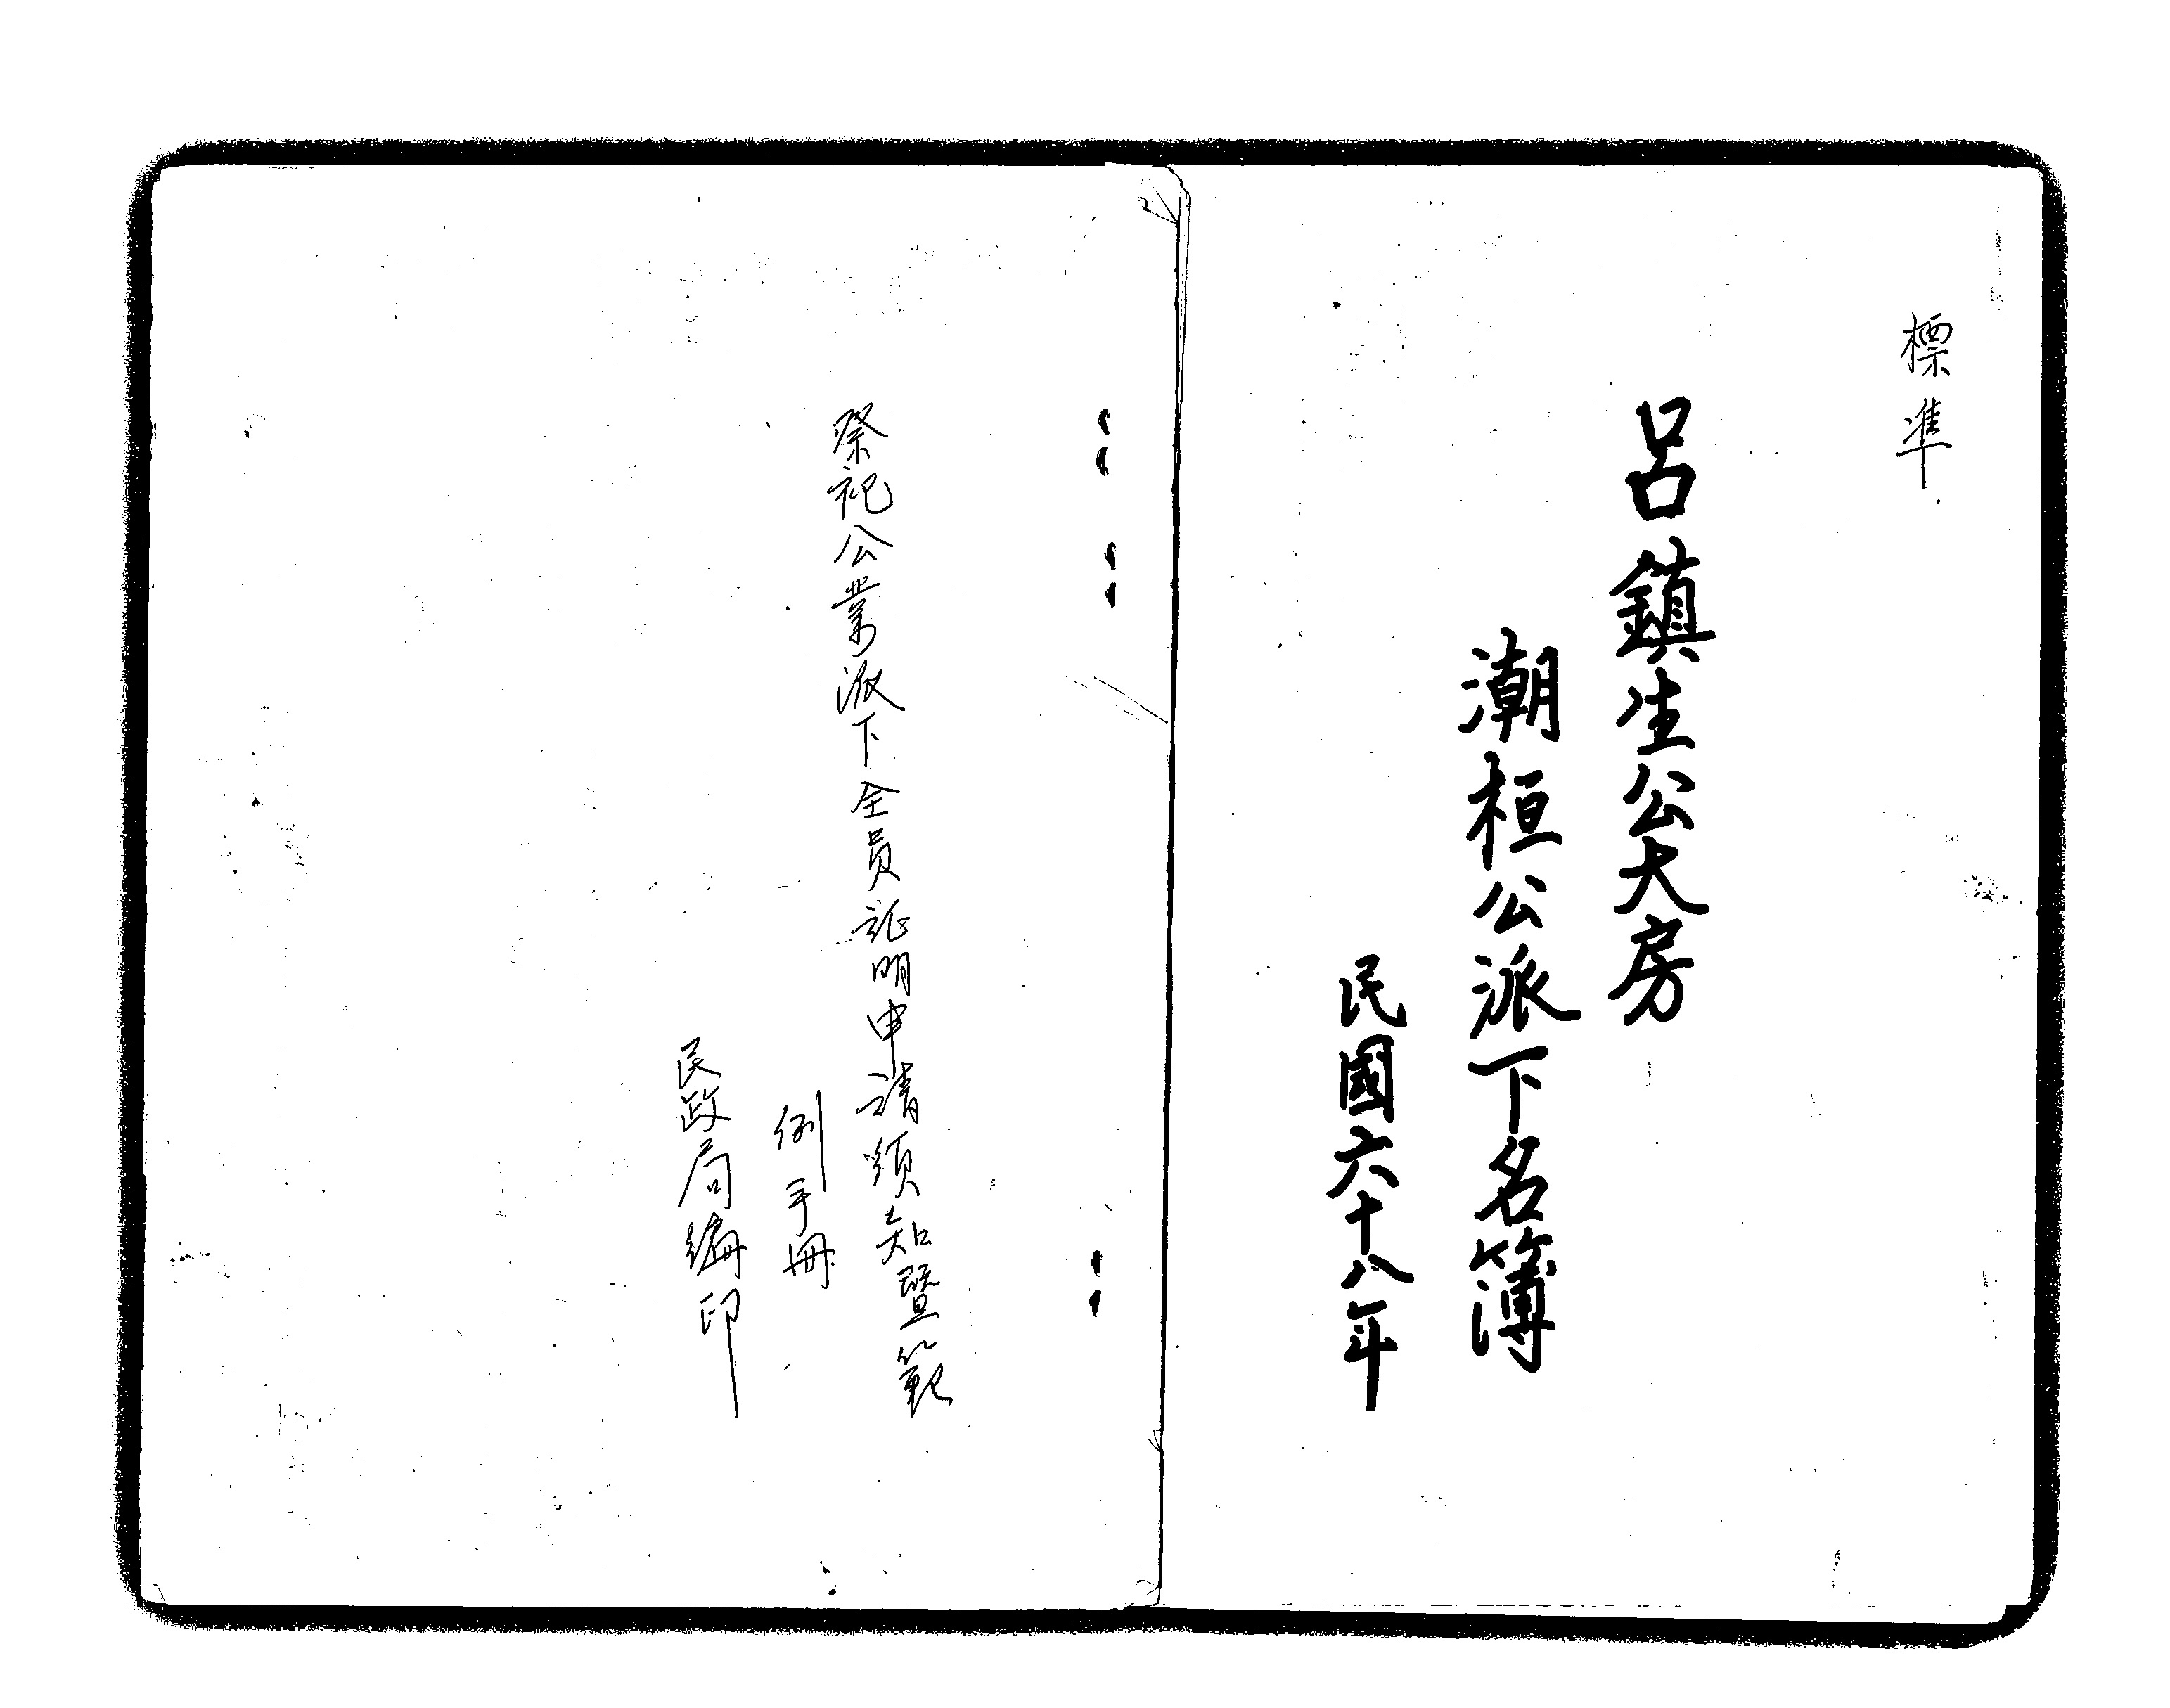 標準
呂鎮生公大房
潮桓公派下名簿
民國六十八年
祭祀公業派下全員証明申請須知暨範
例手冊
民政局編印